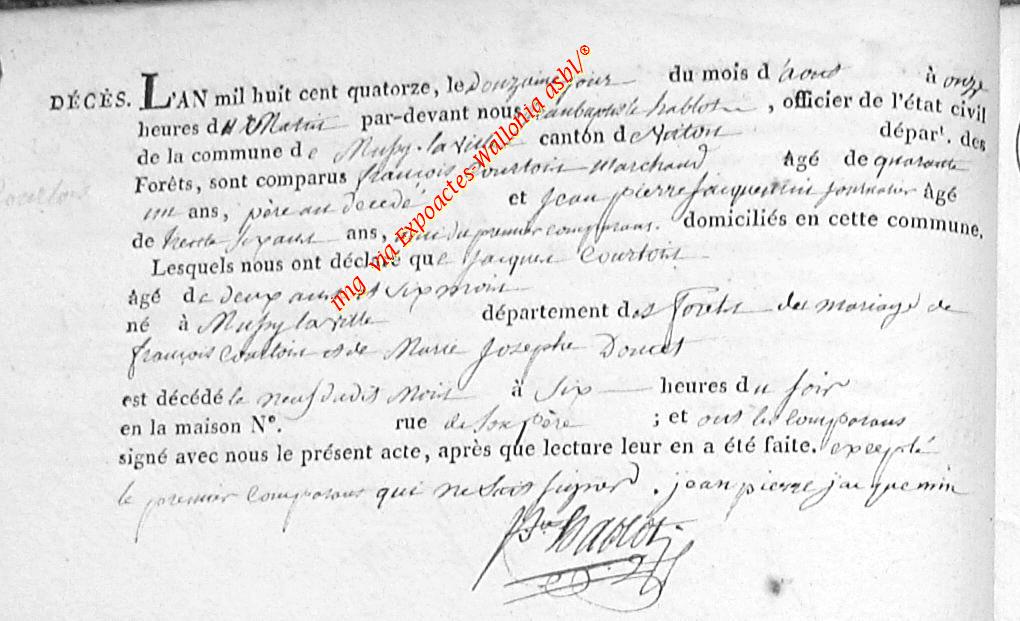 DÉCÈS. L'AN mil huit cent quatorze, le douzaine jour du mois d'aout à onze
heures du Matin par-devant nous Jeanbaptiste hablot, officier de l'état civil
de la commune de Mussy-la ville cantón de Virton départ. des
Courtois
Forêts, sont comparus françois Courtois Marchand âgé de quarante
un ans, père au decedé et Jean pierre Jacquemin journalier âgé
de trente six ans ans, du premier comparans. domiciliés en cette commune.
Lesquels nous ont déclaré que Jacques Courtois
âgé de deux ans et six mois
né à Mussy la ville département des forets du mariage de
françois Courtois et de Marie Josephe Doucet
est décédé le neuf dudit mois à six heures du soir
en la maison N°. rue de son père ; et ont les comparans
signé avec nous le présent acte, après que lecture leur en a été faite. excepté
le premier comparant qui ne sait signer. jean pierre jacquemin
Hablot
img via Expoactes-Wallonia asbl/®